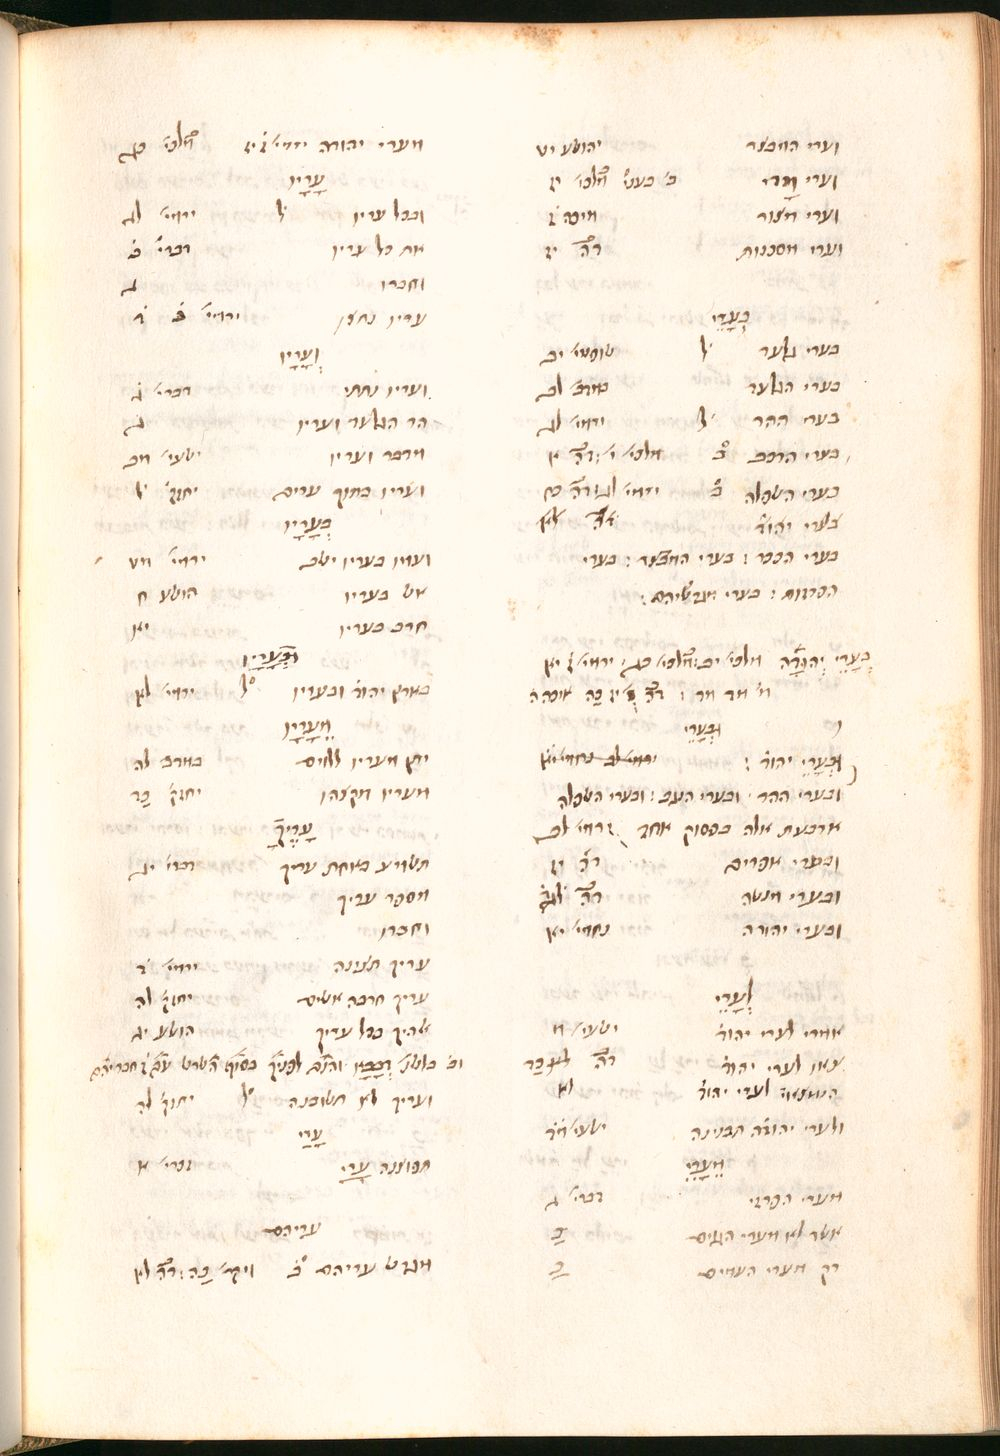 וערי המבצר יהושע יט
וערי
וערי מצור מיכה ז
וערי מסכנות דה׳ יז
בְּעָרֵי
בערי גלעד ל׳ שופטי׳ יב
בערי הגלעד במדב׳ לב
בערי ההר ל׳ ירמי׳ לג
בערי הרכב ב׳ מלכי׳ י׳ דה׳ א
בערי השפלה ב׳ ירמי׳ לג דה׳ כח
בערי יהוד׳ דה׳ לא
בערי הככר : בערי המבצר : בערי
הפרזות : בערי מגרשיהם :
בְּעָרֵי יְהוּדָה מלכי׳ יב ומלכי׳ כג ירמי׳ ז יא
וּבְעָרֵי
וּבְעָרֵי יהוד׳ : ירמי׳ לב נחמי׳ יא
ובערי ההר : ובערי הנגב : ובערי השפלה
ארבעת אלה בפסוק אחד ירמי׳ לב
ובערי אפרים דה׳ יז
ובערי מנשה דה׳ לד
ובערי יהודה נחמי׳ יא
לְעָרֵי
אמרי לערי יהוד׳ ישעי׳ מ
צאו לערי יהוד׳ דה׳ כד
הנמצאי׳ לערי יהוד׳ לא
ולערי יהודה תבנינה ישעי׳ מד
מֵעָרֵי
מערי הפרזי דברי׳ ג
אשר לא מערי הגוים כ
רק מערי העמים כ
מערי יהודה ירמי׳ יז ומלכי׳ כג
עָרָיו
ובכל עריו ל׳ ירמי׳ לד
את כל עריו דברי׳ ב
וחברו ג
עריו נתצו ירמי׳ ב׳ ד
וְעָרָיו
ועריו נתתי דברי׳ ג
הר הגלעד ועריו ג
מדבר ועריו ישעי׳ מב
ועריו בתוך ערים יחזק׳ ל
בְּעָרָיו
ועמו בעריו ישב ירמי׳ מט
אש בעריו הושע ח
חרב בעריו יא
וּבְעָרָיו
בארץ יהוד׳ ובעריו ל׳ ירמי׳ לא
מֵעָרָיו
יתן מעריו ללוים במדב׳ לה
מעריו מקצהו יחזק׳ כד
עָרֶיךָ
תשמע באחת עריך דברי׳ יג
מספר עריך
וחברו
עריך תצנה ירמי׳ ד
עריך חרבה אשים יחזק׳ לה
אהיך בכל עריך הושע יג
ועריך לא תשובנה ל׳ יחזק׳ לה
עָרַי
תפוצנה עָרַי זכרי׳ א
עריהם
מגרש עריהם ב׳ ויקר׳ כה דה׳ לא